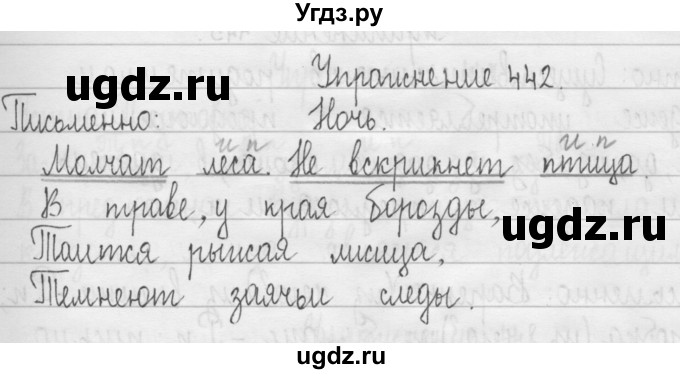 Угдз.ру
Упражнение 442
Письменно: Ночь.
и п и. п
Молчат леса. Не вскрикнет птица
В траве, у края борозды,
Таится рыжая лисица,
Темнеют заячьи следы.
ugdz.ru
ugdz.ru
ugdz.ru
ugdz.ru
ugdz.ru